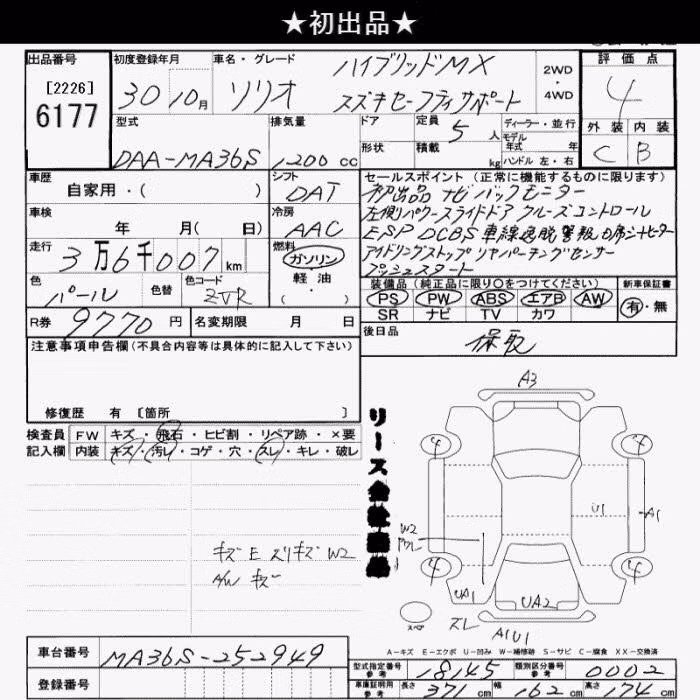 ★初出品★
出品番号
[2226]
6177
初度登録年月
30 10月
車名・グレード
ソリオ
ハイブリッドMX
スズキセーフティサポート
2WD
・
4WD
評価点
4
外装 内装
C B
型式
DAA-MA36S
排気量
1200 cc
ドア
形状
定員 5 人
積載 kg
ディーラー・並行
モデル
年式 年
ハンドル 左・右
車歴
自家用・( )
シフト
DAT
車検
年 月( 日)
冷房
AAC
走行
3万6千007km
燃料
ガソリン
軽油
・( )
色
パール
色替
色コード
ZVR
R券 9770円
名変期限 月 日
セールスポイント (正常に機能するものに限ります)
初出品 ナビ バックモニター
左側パワースライドドア クルーズコントロール
ESP DCBS 車線逸脱警報 右席シートヒーター
アイドリングストップ リヤパーキングセンサー
プッシュスタート
装備品(純正品に限り○をつけてください)
新車保証書
PS PW ABS エアB AW
SR ナビ TV カワ
有・無
後日品
保取
注意事項申告欄(不具合内容等は具体的に記入して下さい)
修復歴 有 [箇所 ]
検査員
記入欄
FW キズ・飛石・ヒビ割・リペア跡・×要
内装 キズ・汚レ・コゲ・穴・スレ・キレ・破レ
キズ E スリキズ W2
AW キズ
A3
4
4
U1
A1
W2
4
4
UA1
UA2
スペア
ズレ
A1U1
A-キズ E-エクボ U-凹み W-補修跡 S-サビ C-腐食 XX-交換済
車台番号 MA36S-252949
登録番号
型式指定番号
参考
18145
類別区分番号
参考
0002
車庫証明用
参考
長さ 371cm 幅 162cm 高さ 174cm